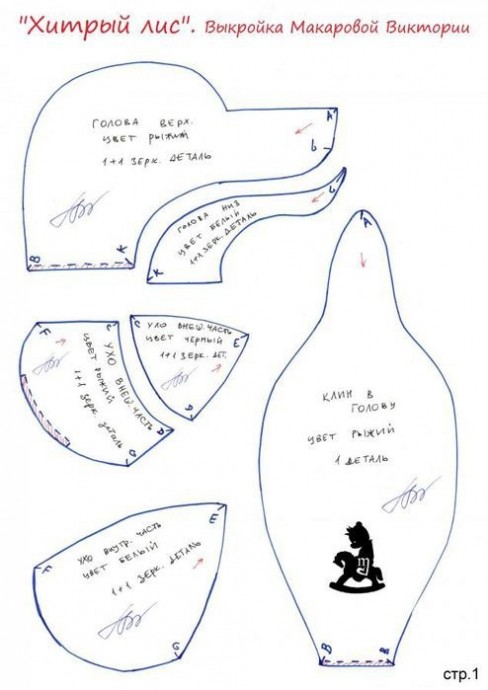 "Хитрый лис". Выкройка Макаровой Виктории
ГОЛОВА ВЕРХ.
ЦВЕТ РЫЖИЙ
1+1 ЗЕРК. ДЕТАЛЬ
A
b
B
K
ГОЛОВА НИЗ
ЦВЕТ БЕЛЫЙ
1+1 ЗЕРК. ДЕТАЛЬ
b
K
A
КЛИН В
ГОЛОВУ
ЦВЕТ РЫЖИЙ
1 ДЕТАЛЬ
B
B
F
C
УХО ВНЕШ. ЧАСТЬ
ЦВЕТ РЫЖИЙ
1+1 ЗЕРК. ДЕТАЛЬ
D
G
C
УХО ВНЕШ. ЧАСТЬ
ЦВЕТ ЧЕРНЫЙ
1+1 ЗЕРК. ДЕТ.
E
D
УХО ВНУТР. ЧАСТЬ
ЦВЕТ БЕЛЫЙ
1+1 ЗЕРК. ДЕТАЛЬ
E
F
G
стр.1